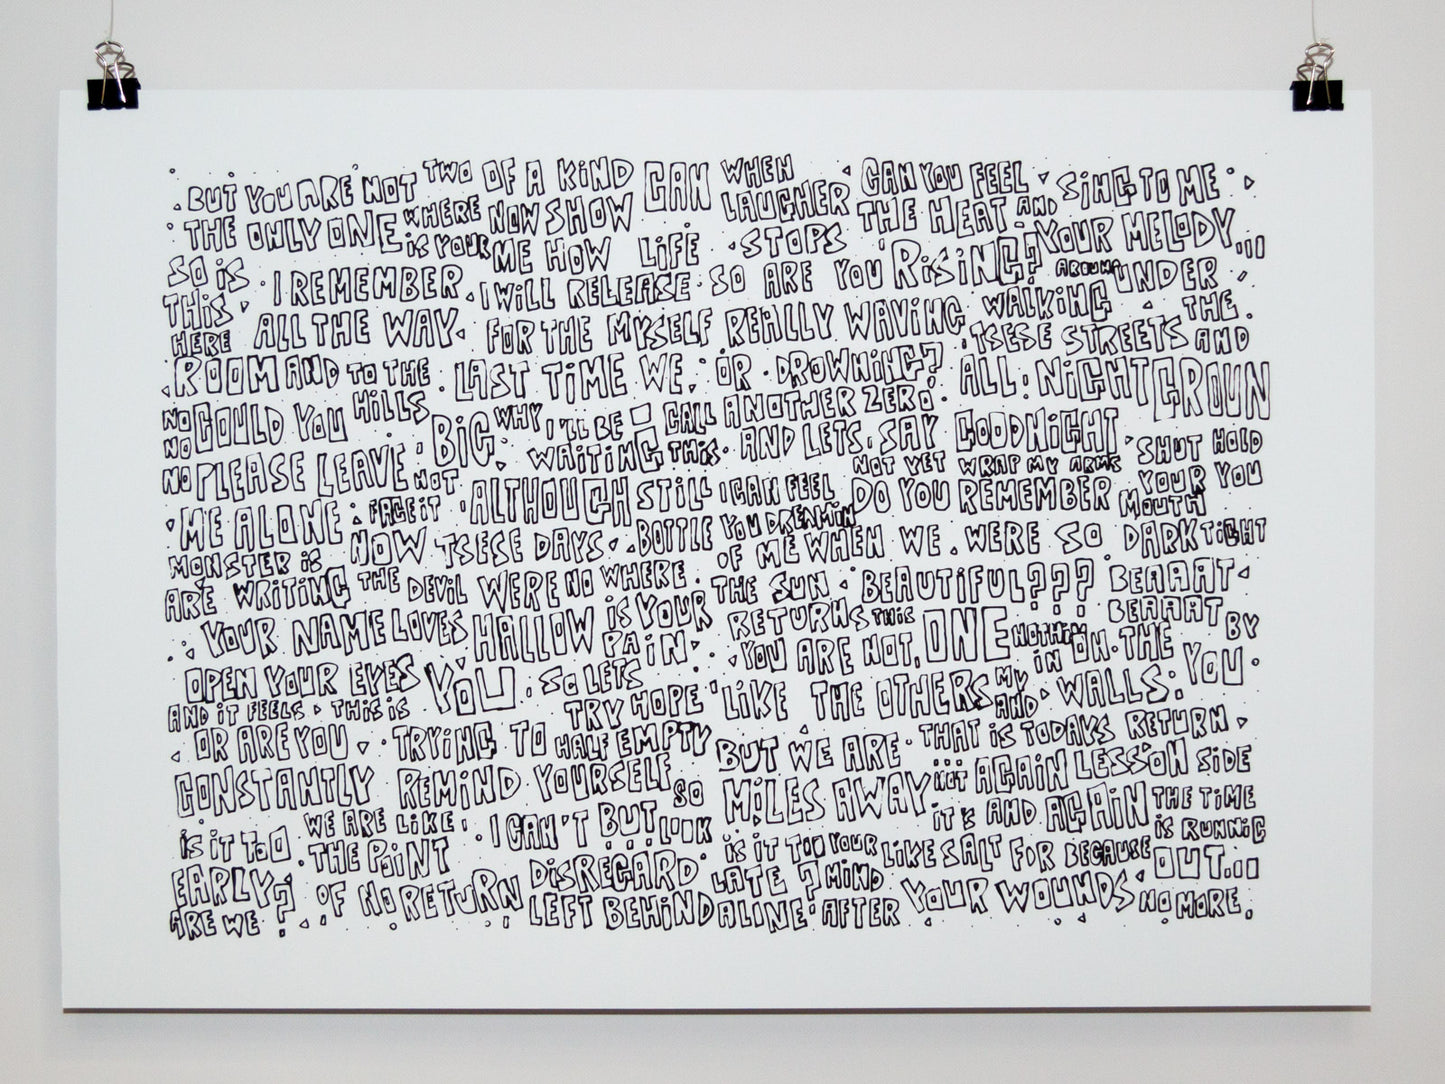 BUT YOU ARE NOT TWO OF A KIND CAN WHEN CAN YOU FEEL SING TO ME
THE ONLY ONE WHERE NOW SHOW LAUGHER THE HEAT AND YOUR MELODY...
SO IS IS YOUR ME HOW LIFE STOPS RISING? AROUND UNDER
THIS I REMEMBER I WILL RELEASE SO ARE YOU WALKING THE
HERE ALL THE WAY FOR THE MYSELF REALLY WAVING TSESE STREETS AND
ROOM AND TO THE LAST TIME WE OR DROWNING? ALL NIGHT GROUN
NO COULD YOU HILLS BIG WHY I'LL BE CALL ANOTHER ZERO
NO WAITING THIS AND LETS SAY GOODNIGHT SHUT HOLD
NO PLEASE LEAVE NOT ALTHOUGH STILL I CAN FEEL NOT YET WRAP MY ARMS YOUR YOU
ME ALONE FACE IT BOTTLE YOU DREAMIN DO YOU REMEMBER MOUTH
MONSTER IS NOW TSESE DAYS OF ME WHEN WE WERE SO DARK TIGHT
ARE WRITING THE DEVIL WERE NO WHERE THE SUN BEAUTIFUL??? BEAAAT
YOUR NAME LOVES HALLOW IS YOUR RETURNS THIS BEAAAT BY
OPEN YOUR EYES YOU PAIN YOU ARE NOT, ONE NOTHIN ON THE YOU
AND IT FEELS THIS IS SO LETS LIKE THE OTHERS MY IN WALLS
OR ARE YOU TRYING TO TRY HOPE AND THAT IS TODAYS RETURN
CONSTANTLY REMIND YOURSELF HALF EMPTY BUT WE ARE NOT AGAIN LESSON SIDE
IS IT TOO WE ARE LIKE I CAN'T BUT SO MILES AWAY IT'S AND AGAIN THE TIME
EARLY? THE POINT LOOK IS IT TOO YOUR LIKE SALT FOR BECAUSE IS RUNNIG
OF NO RETURN DISREGARD LATE? MIND YOUR WOUNDS OUT...
ARE WE LEFT BEHIND ALINE AFTER NO MORE.